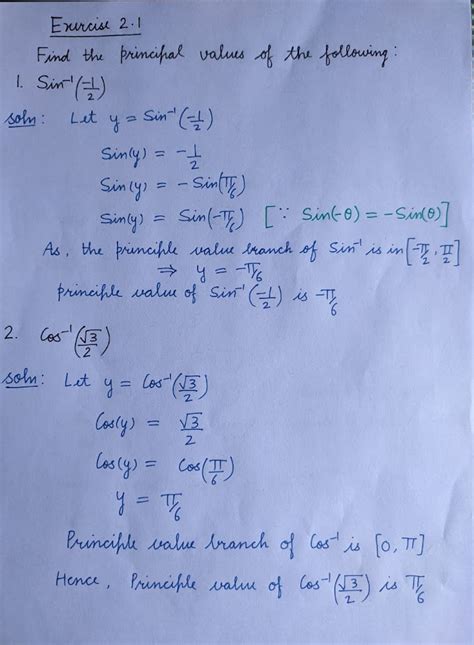 Exercise 2.1
Find the principal values of the following:
1. Sin⁻¹(-1/2)
soln: Let y = Sin⁻¹(-1/2)
Sin(y) = -1/2
Sin(y) = - Sin(π/6)
Sin(y) = Sin(-π/6) [∵ Sin(-θ) = -Sin(θ)]
As, the principle value branch of Sin⁻¹ is in [-π/2, π/2]
⇒ y = -π/6
principle value of Sin⁻¹(-1/2) is -π/6
2. Cos⁻¹(√3/2)
soln: Let y = Cos⁻¹(√3/2)
Cos(y) = √3/2
Cos(y) = Cos(π/6)
y = π/6
Principle value branch of Cos⁻¹ is [0, π]
Hence, Principle value of Cos⁻¹(√3/2) is π/6